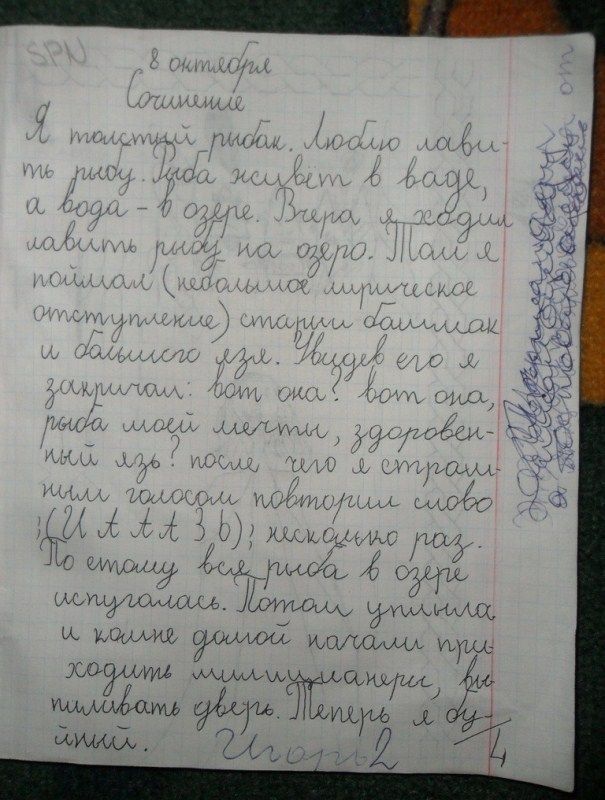 SPN
8 октября
Сочинение
Я толстый рыбак. Люблю лави-
ть рыбу. Рыба живёт в ваде,
а вода - в озере. Вчера я ходил
лавить рыбу на озеро. Там я
поймал (небольшое лирическое
отступление) старии башмак
и большого язя. Увидев его я
закричал: вот она? вот она,
рыба моей мечты, здоровен-
ный язь? после чего я страш-
ным голосом повторил слово
;(И А А А З Ь); несколько раз.
По етому вся рыба в озере
испугалась. Потом уплыла
и комне домой начали при
ходить милицианеры, вы
пиливать дверь. Теперь я бу-
йный. Игорь 2/4
от